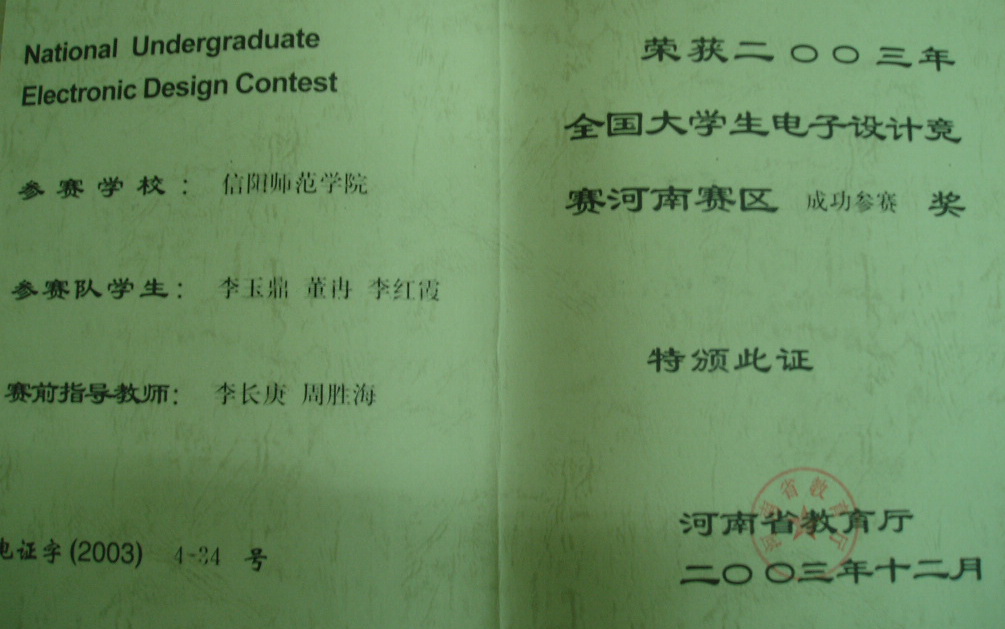 National Undergraduate
Electronic Design Contest
参赛学校：信阳师范学院
参赛队学生：李玉鼎 董冉 李红霞
赛前指导教师：李长庚 周胜海
电证字(2003) 4-34 号
荣获二〇〇三年
全国大学生电子设计竞
赛河南赛区 成功参赛 奖
特颁此证
河南省教育厅
河南省教育厅
二〇〇三年十二月